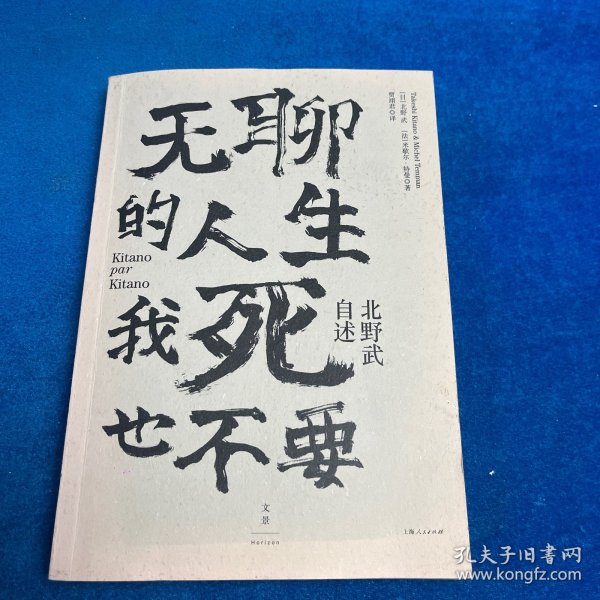 无聊
的人生
我死
也不要
Kitano
par
Kitano
北野武
自述
Takeshi Kitano & Michel Temman
［日］北野 武 ［法］米歇尔·特曼◎著
贾琦君◎译
文
景
Horizon
上海人民出版社
孔夫子旧书网
www.kongfz.com